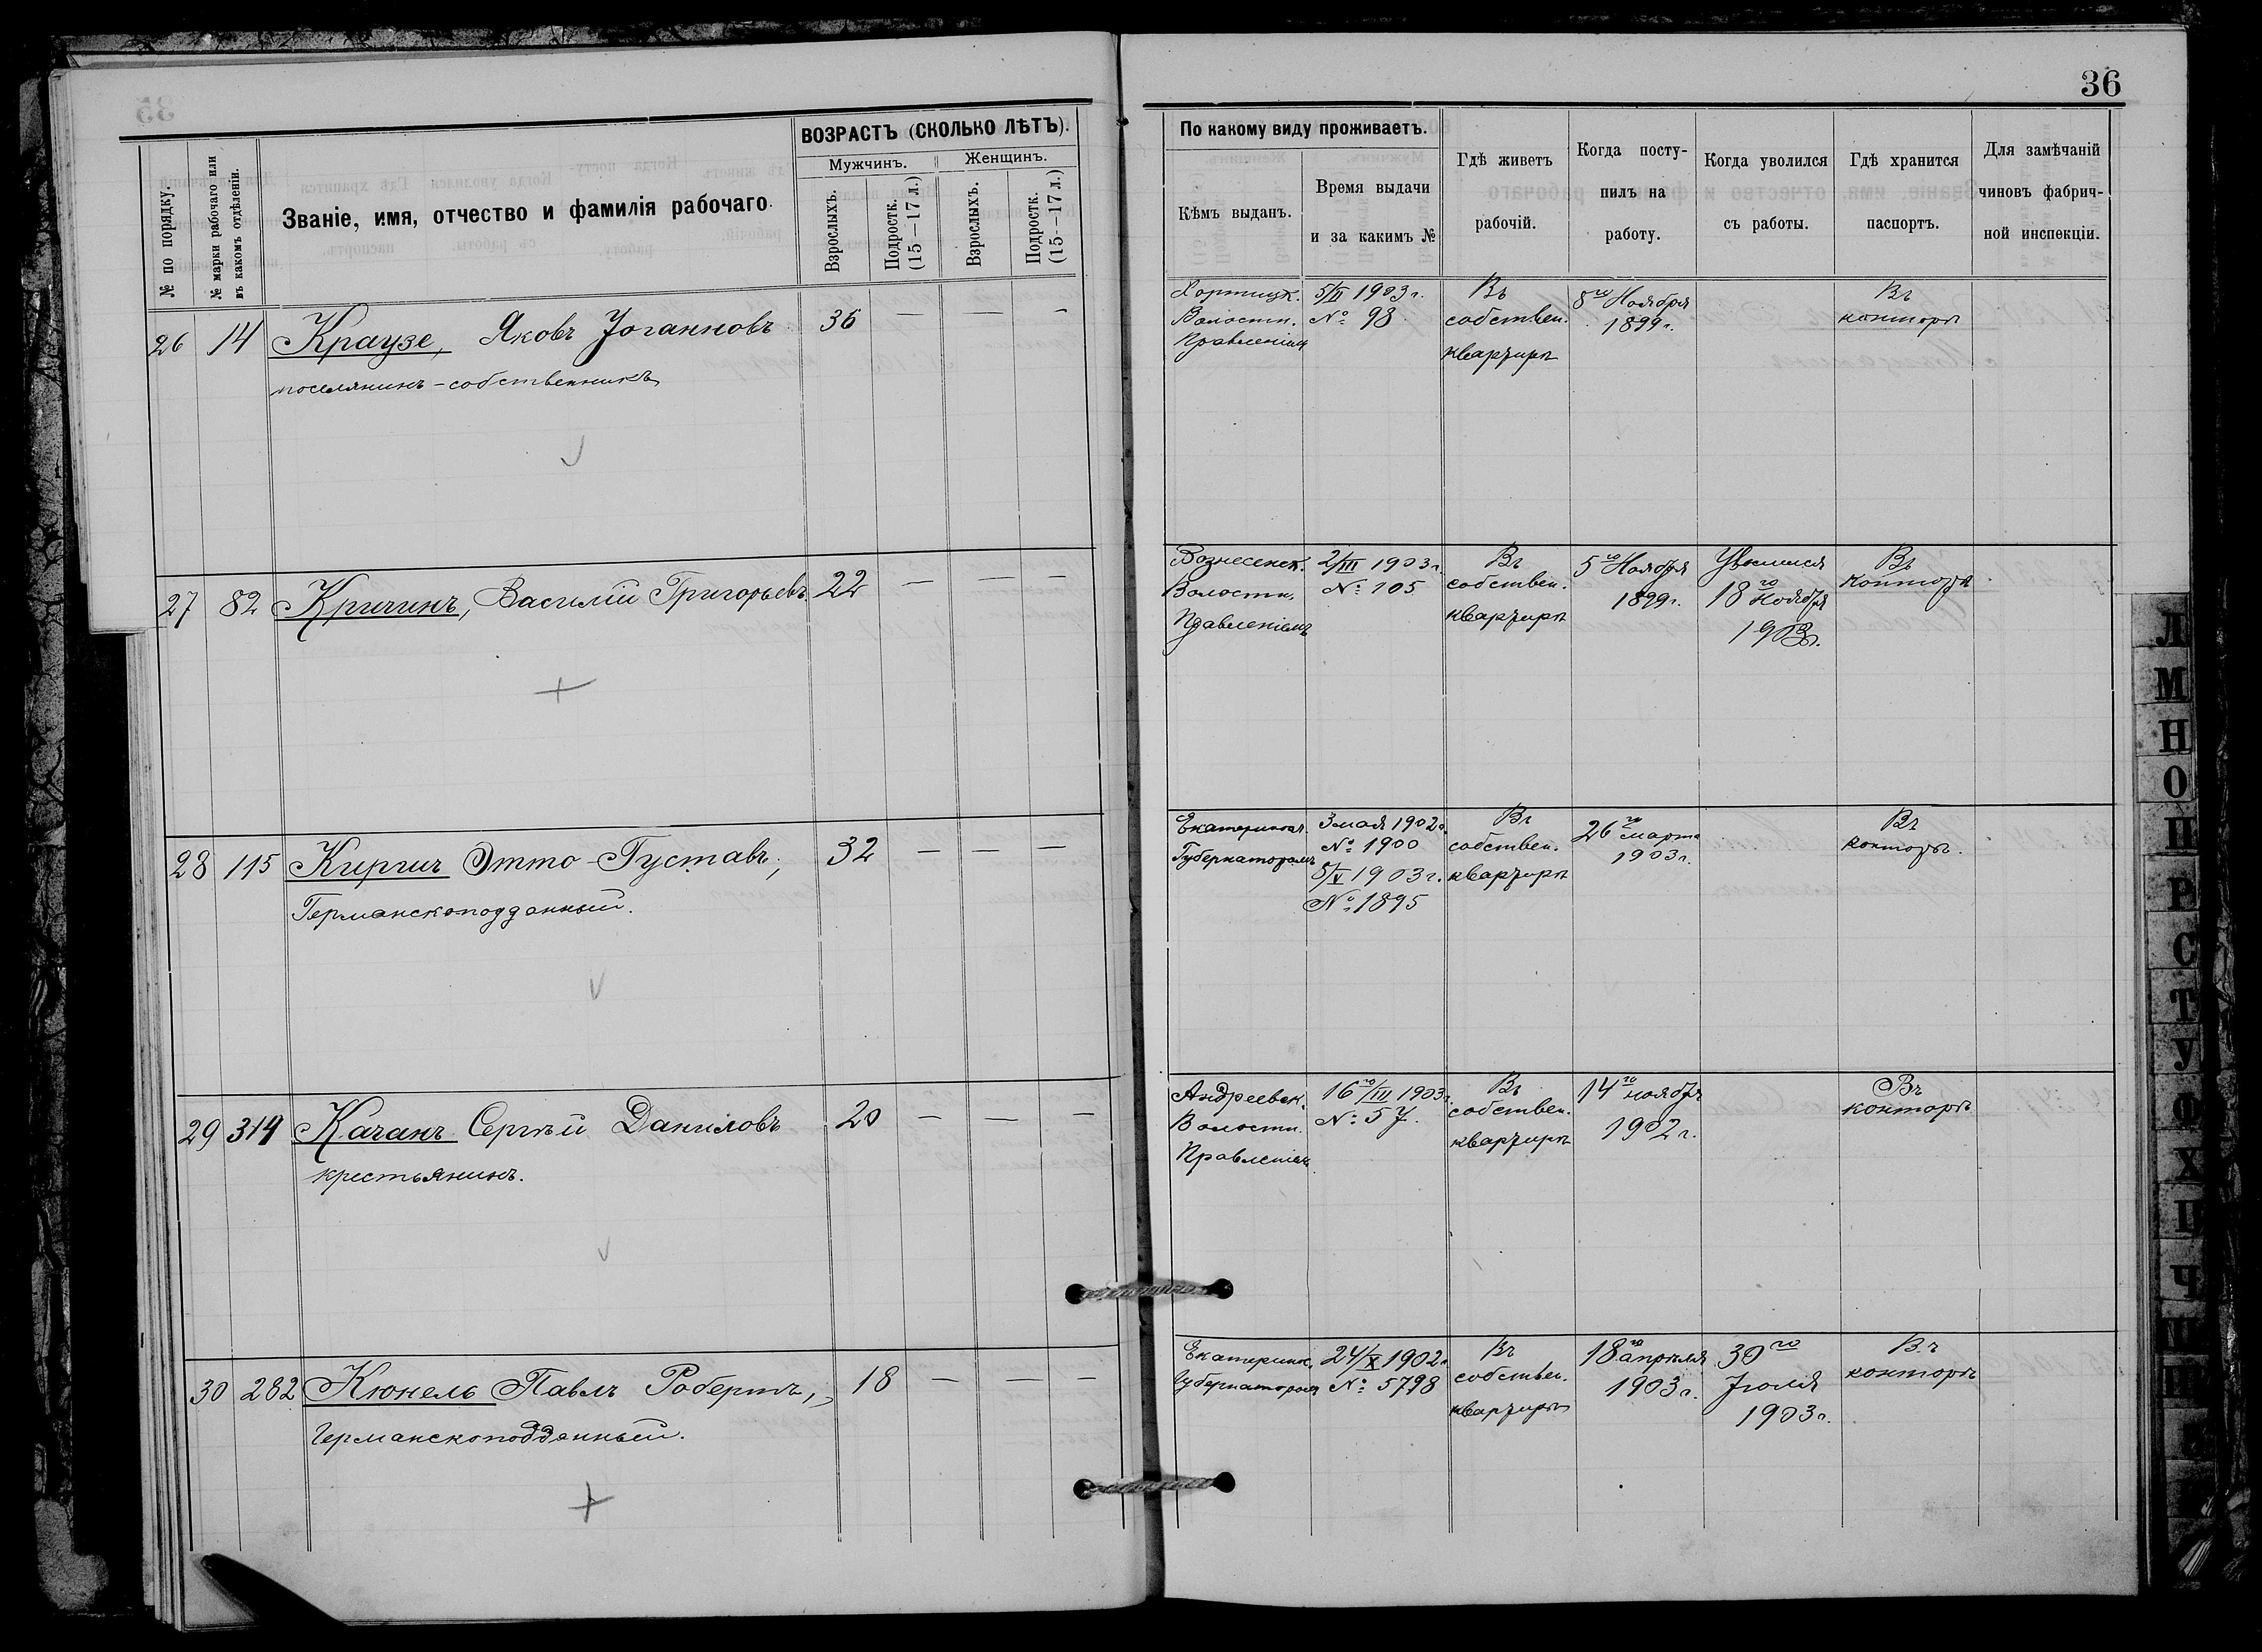 36
ВОЗРАСТЪ (СКОЛЬКО ЛѢТЪ).
Мужчинъ. Женщинъ.
№ по порядку.
№ марки рабочаго или
въ какомъ отдѣленіи.
Званіе, имя, отчество и фамилія рабочаго.
Взрослыхъ.
Подростк.
(15—17 л.)
Взрослыхъ.
Подростк.
(15—17 л.)
По какому виду проживаетъ.
Кѣмъ выданъ.
Время выдачи
и за какимъ №
Гдѣ живетъ
рабочій.
Когда посту-
пилъ на
работу.
Когда уволился
съ работы.
Гдѣ хранится
паспортъ.
Для замѣчаній
чиновъ фабрич-
ной инспекціи.
26 14 Краузе, Яковъ Іоганновъ 36 — — —
поселянинъ-собственникъ
Хортицк.
Волостн.
Правленіем
5/II 1903 г.
№ 98
Въ
собствен.
квартирѣ
8го Ноября
1899 г.
Въ
конторѣ
27 82 Кричинъ, Василій Григорьевъ 22 — — —
Вознесенск.
Волостн.
Правленіемъ
2/III 1903 г.
№ 105
Въ
собствен.
квартирѣ
5го Ноября
1899 г.
Уволился
18го
Ноября
1903 г.
Въ
конторѣ
28 115 Киргич Отто-Густавъ, 32 — — —
Германскоподданный.
Екатериносл.
Губернаторомъ
3 мая 1902 г.
№ 1900
5/V 1903 г.
№ 1895
Въ
собствен.
квартирѣ
26го марта
1903 г.
Въ
конторѣ.
29 314 Качанъ Сергѣй Даниловъ 20 — — —
крестьянинъ.
Андреевск.
Волостн.
Правленіем
16го/III 1903 г.
№ 57.
Въ
собствен.
квартирѣ
14го ноября
1902 г.
Въ
конторѣ
30 282 Кюнель Павлъ Робертъ, 18 — — —
Германскоподданный.
Екатеринк.
Губернатором
24/X 1902 г.
№ 5798
Въ
собствен.
квартирѣ
18го апрѣля
1903 г.
30го
Іюля
1903 г.
Въ
конторѣ
Л
М
Н
О
П
Р
С
Т
У
Ф
Х
Ц
Ч